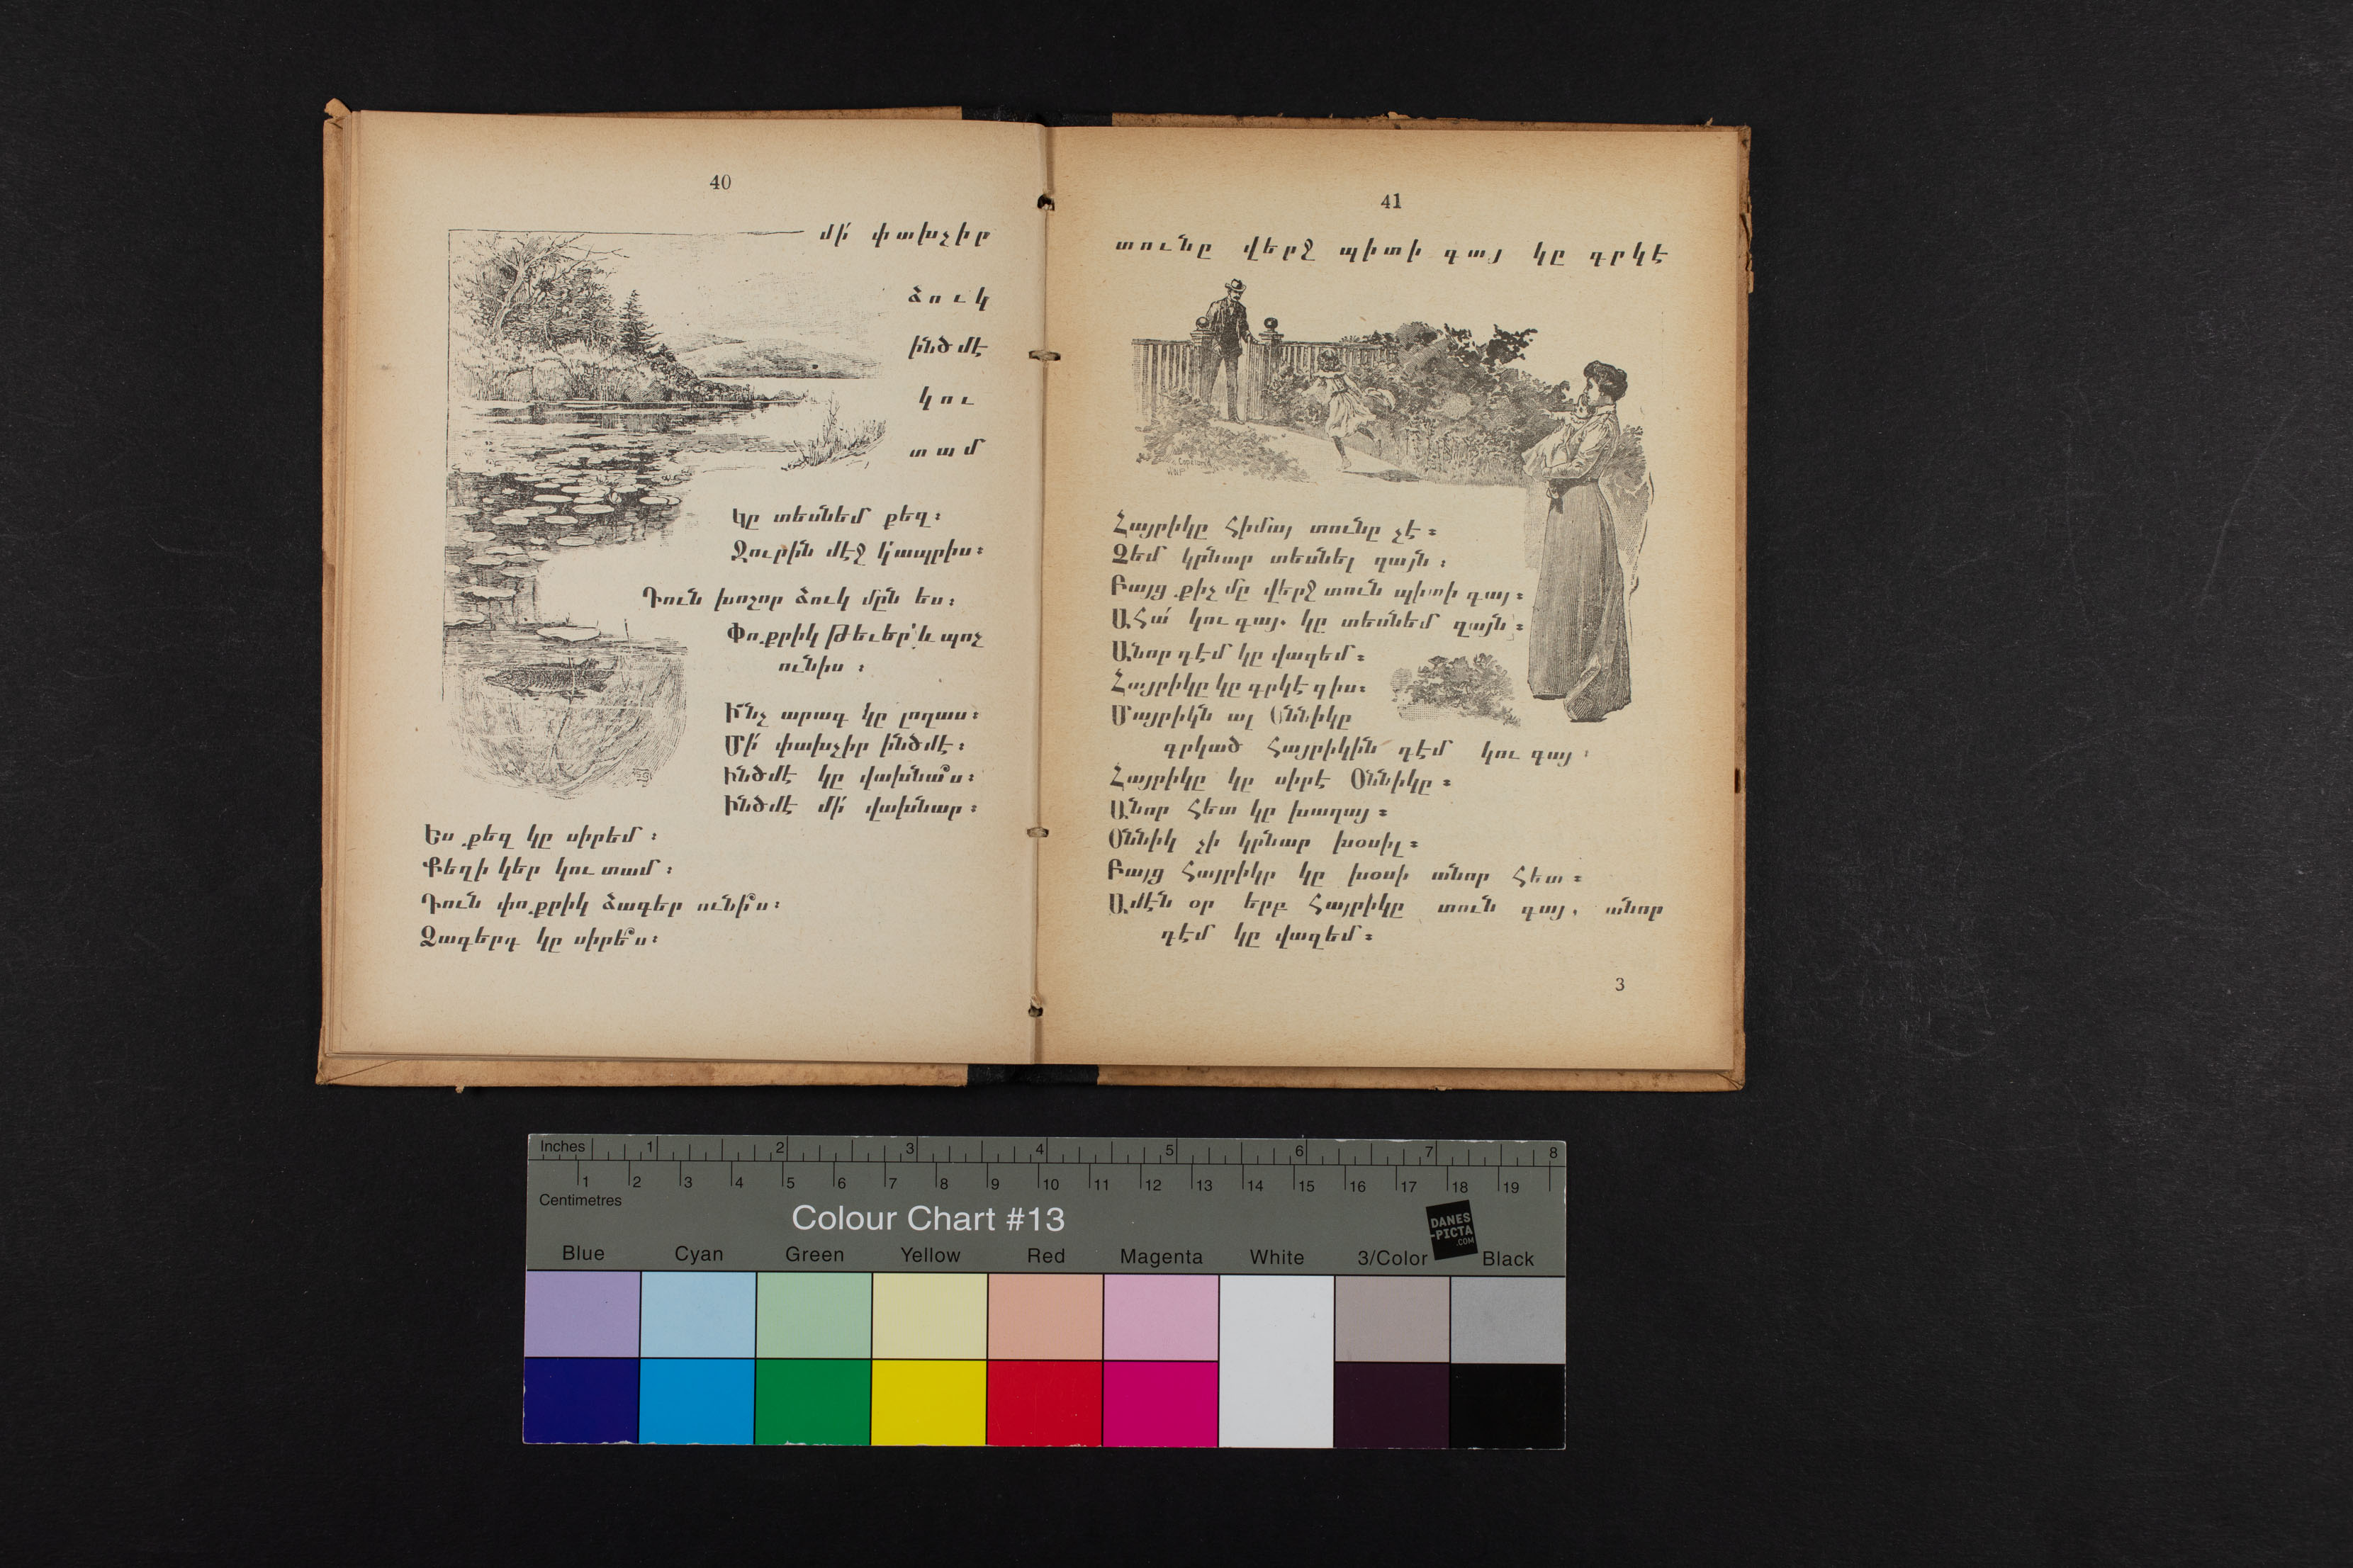 40
մի՛ փախչիր
ձուկ
ինծմէ
կու
տամ
կը տեսնեմ քեզ։
Ջուրին մէջ կ՚ապրիս։
Դուն խոշոր ձուկ մըն ես։
Փոքրիկ թեւեր՝ և պոչ
ունիս։
Ի՜նչ արագ կը լողաս։
Մի՛ փախչիր ինծմէ։
Ինծմէ կը վախնա՞ս։
Ինծմէ մի՛ վախնար։
Ես քեզ կը սիրեմ։
Քեզի կեր կու տամ։
Դուն փոքրիկ ձագեր ունի՞ս։
Ձագերդ կը սիրե՞ս։
41
տունը վերջ պիտի գայ կը գրկէ
Հայրիկը հիմայ տունը չէ։
Չեմ կրնար տեսնել զայն։
Բայց քիչ մը վերջ տուն պիտի գայ։
Ահա՛ կու գայ. կը տեսնեմ զայն։
Անոր դէմ կը վազեմ։
Հայրիկը կը գրկէ զիս։
Մայրիկն ալ Օննիկը
գրկած հայրիկին դէմ կու գայ։
Հայրիկը կը սիրէ Օննիկը։
Անոր հետ կը խաղայ։
Օննիկ չի կրնար խօսիլ։
Բայց հայրիկը կը խօսի անոր հետ։
Ամէն օր երբ հայրիկը տուն գայ, անոր
դէմ կը վազեմ։
3
Inches 1 2 3 4 5 6 7 8
1 2 3 4 5 6 7 8 9 10 11 12 13 14 15 16 17 18 19
Centimetres
Colour Chart #13
DANES
-PICTA
.COM
Blue Cyan Green Yellow Red Magenta White 3/Color Black